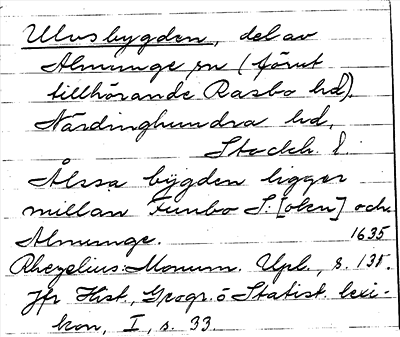 Ulvsbygden, del av
Almunge sn (förut
tillhörande Rasbo hd).
Närdinghundra hd,
Stockh. l.
Ålssa bygden ligger
millan Funbo S: [okn] och
Almunge. 1635
Rhezelius: Monum. Upl., s. 131.
Jfr Hist., Geogr. o Statist. lexi-
kon, I, s. 33.